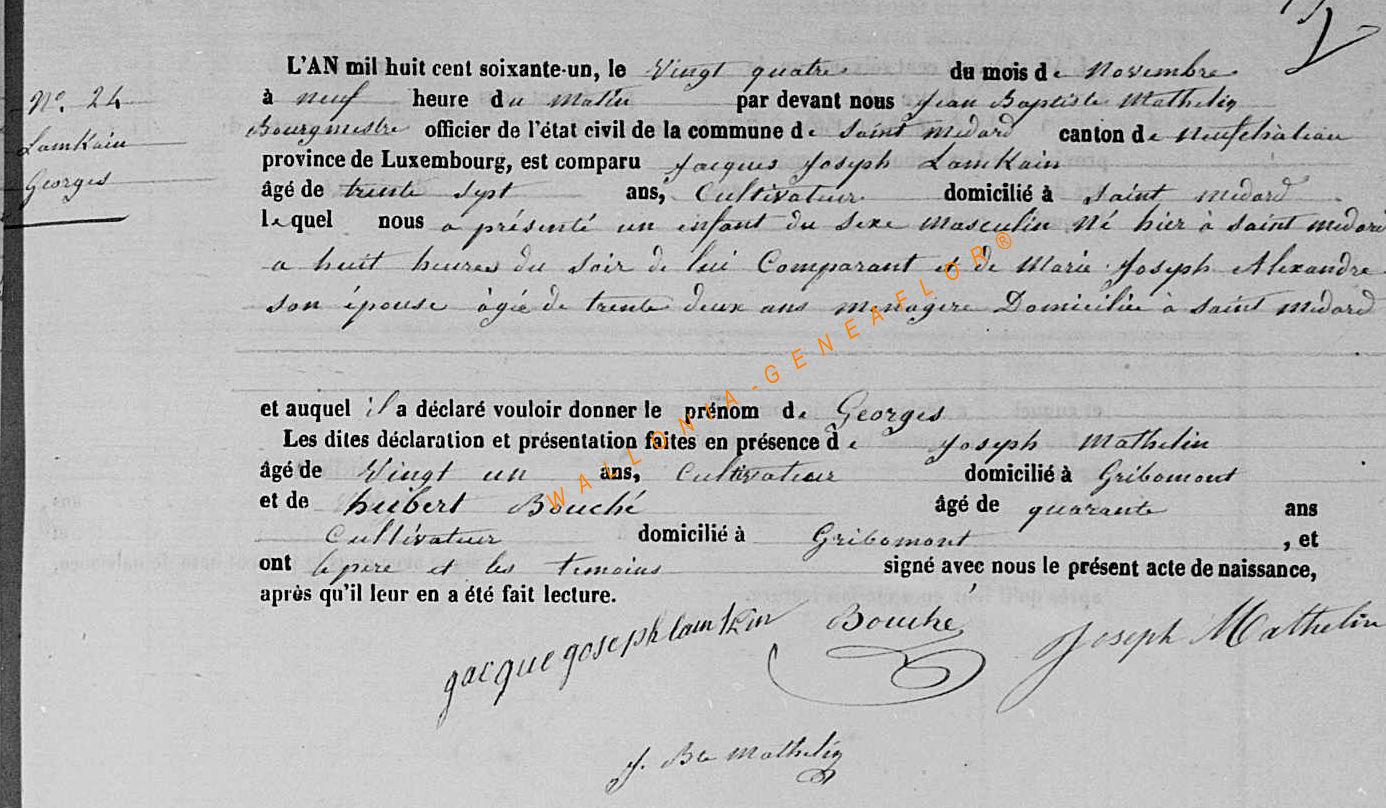 L'AN mil huit cent soixante-un, le Vingt quatre du mois de Novembre
N°. 24
à neuf heure du Matin par devant nous Jean Baptiste Mathelin
Bourgmestre officier de l'état civil de la commune de Saint Medard canton de Neufchâteau
LamKain
province de Luxembourg, est comparu Jacques Joseph LamKain
Georges
âgé de trente sept ans, Cultivateur domicilié à Saint Medard
lequel nous a présenté un enfant du sexe Masculin Né hier à Saint Medard
a huit heures du soir de lui Comparant et de Marie Joseph Alexandre
son épouse âgée de trente deux ans menagere Domiciliée à Saint Medard
et auquel il a déclaré vouloir donner le prénom de Georges
Les dites déclaration et présentation faites en présence de Joseph Mathelin
âgé de Vingt un ans, Cultivateur domicilié à Gribomont
et de hubert Bouché âgé de quarante ans
Cultivateur domicilié à Gribomont , et
ont le pere et les temoins signé avec nous le présent acte de naissance,
après qu'il leur en a été fait lecture.
jacque joseph lamkin Bouché Joseph Mathelin
J. Bte Mathelin
WALLONIA-GENEAFLOR®